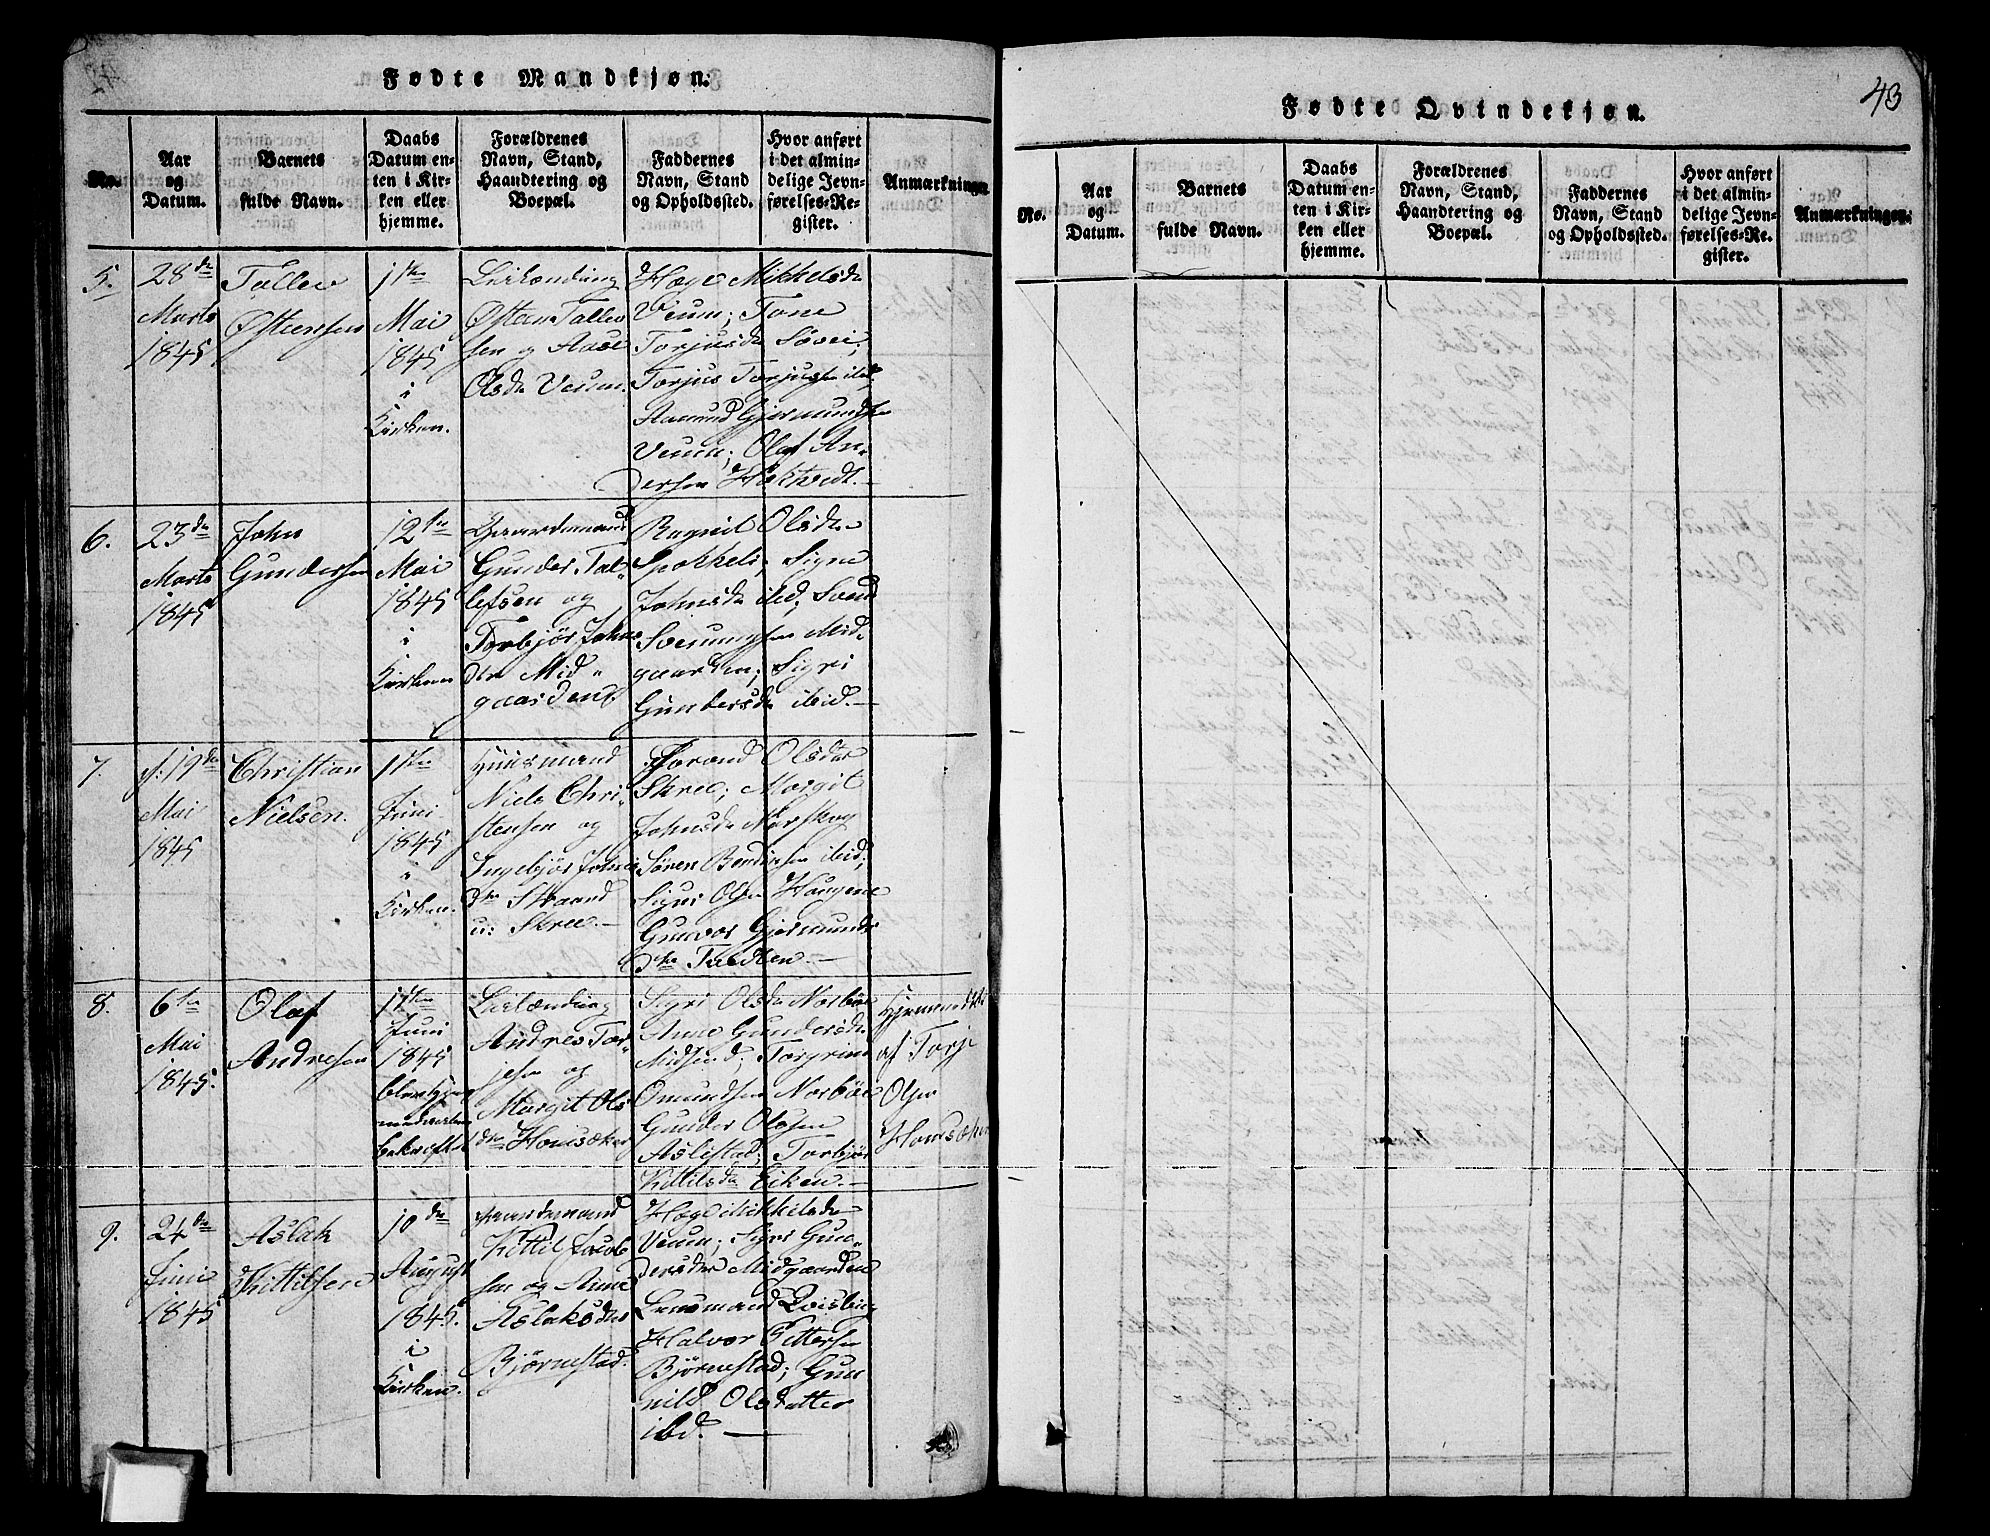 Fødte Mandkjøn.
No.
Aar
og
Datum.
Barnets
fulde Navn.
Daabs
Datum en-
ten i Kir-
ken eller
hjemme.
Forældrenes
Navn, Stand,
Haandtering og
Boepæl.
Faddernes
Navn, Stand
og Opholdssted.
Hvor anført
i det almin-
delige Jevn-
førelses-Re-
gister.
Anmærkninger.
5.
28de
Marts
1845
Tallev
Østensen
1ste
Mai
1845
i
Kirken.
Leilænding
Østen Tallev
sen og Aase
Olsdr Veum.
Hæge Mikkelsdr
Veum; Tone
Torjusdr Søvei;
Torjus Torjussen ibid.
Aamund Gjermundsen
Veum; Olaf An-
dersen Haktvedt.
6.
23de
Marts
1845
John
Gundersen
12te
Mai
1845
i
Kirken
Gaardemand
Gunder Tal-
lefsen og
Torbjør Johns
dtr Mid-
gaarden.
Ragnil Olsdr
Spokkeli; Signe
Johnsdr ibid; Svend
Sveinungsen Mid-
gaarden; Sigri
Gundersdr ibid.
7.
d: 19de
Mai
1845
Christian
Nielsen.
11te
Juni
1845
i
Kirken.
Huusmand
Niels Chri-
stensen og
Ingebjør Johns
dtr Straand
u: Skree.
Jorand Olsdtr
Skree; Margit
Johnsdr Norskog
Søren Bendixsen ibid;
Sigri Olsdr Haugene
Gunvor Gjermunds
dtr Tvedten.
8.
6te
Mai
1845.
Olaf
Andresen
11te
Juni
1845
blev Hjem
medaaben
bekræftet
Leilænding
Andres Tor-
jesen og
Margit Ols
dtr Homsæker
Sigri Olsdr Norbøe
Anne Gundersdr
Midsund; Torgrim
Omundsen Norbøe
Gunder Olsen
Aslestad; Torbjør
Kittilsdr Eiken.
Hjemmedøbt
af Torje
Olsen
Homsæker
9.
24de
Juni
1845
Aslak
Kittilsen
10de
August
1845.
i
Kirken.
Gaardemand
Kittil Jacob
sen og Anne
Aslaksdtr
Bjørnestad.
Hæge Mikkelsdr
Veum; Sigri Gun-
dersdr Midgaarden
Lensmand Qvisling
Halvor Pettersen
Bjørnestad; Gun
nild Olsdatter
ibd.
43
Fødte Qvindekjøn.
No.
Aar
og
Datum.
Barnets
fulde Navn.
Daabs
Datum en-
ten i Kir-
ken eller
hjemme.
Forældrenes
Navn, Stand,
Haandtering og
Boepæl.
Faddernes
Navn, Stand
og Opholdssted.
Hvor anført
i det almin-
delige Jevn-
førelses-Re-
gister.
Anmærkninger.